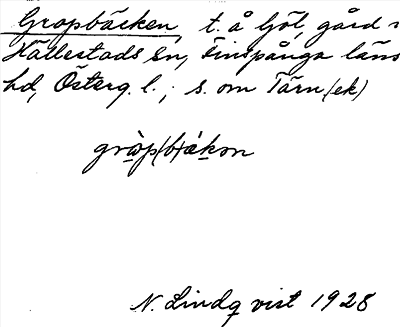 Gropbäcken, t. å Göl, gård i
Hällestads sn, Finspånga läns
hd, Österg. l.; s. om Tärn(ek)
gròp(b)äkon
N. Lindqvist 1928